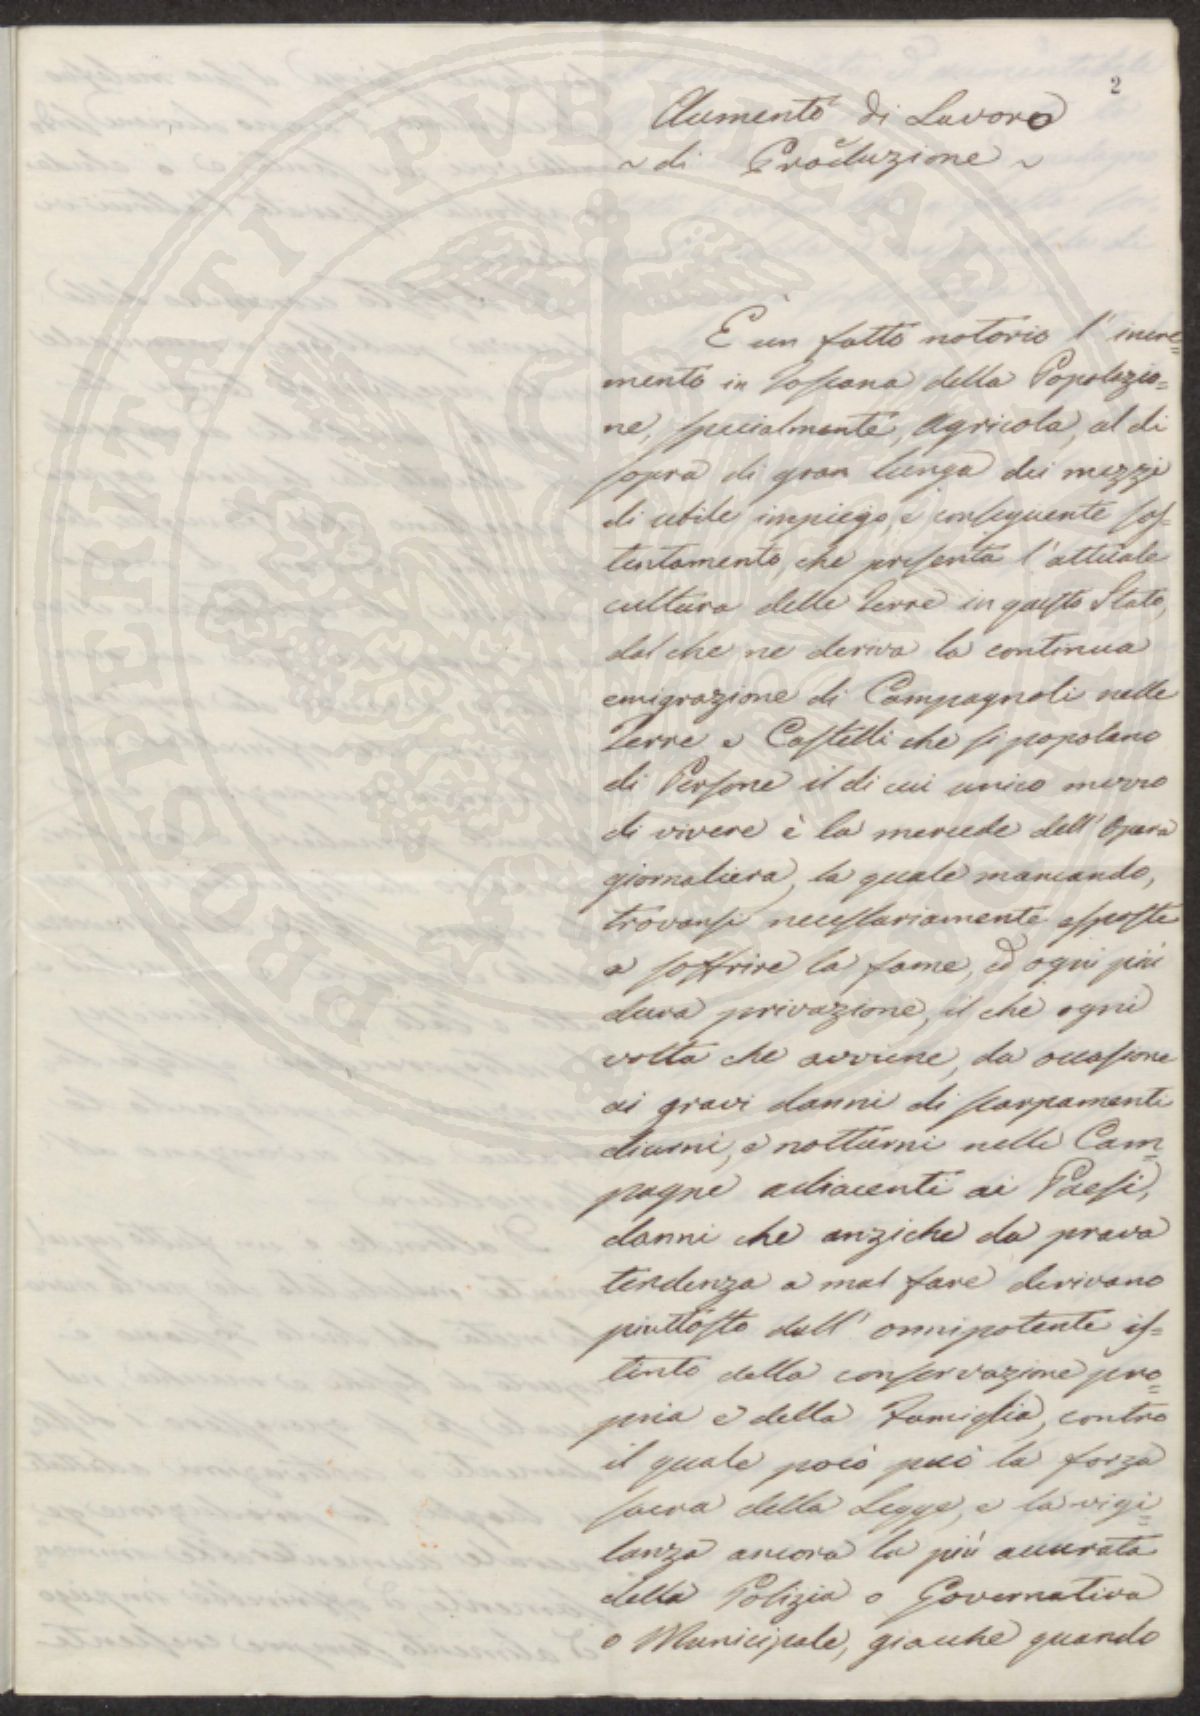 2
Aumento di Lavoro
~ di Produzione ~
È un fatto notorio l'incre=
mento in Toscana della Popolazio=
ne, specialmente, Agricola, al di
sopra di gran lunga dei mezzi
di utile impiego, e conseguente sos=
tentamento, che presenta l'attuale
cultura delle Terre in questo Stato,
dal che ne deriva la continua
emigrazione di Campagnoli nelle
Terre e Castelli che si popolano
di Persone il di cui unico mezzo
di vivere è la mercede dell'Opera
giornaliera, la quale mancando,
trovansi necessariamente esposte
a soffrire la fame, ed ogni più
dura privazione, il che ogni
volta che avviene, da occasione
ai gravi danni di scarpamenti
diurni, e notturni nelle Cam=
pagne adiacenti ai Paesi,
danni che anziche da prava
tendenza a mal fare derivano
piuttosto dall'onnipotente is=
tinto della conservazione pro=
pria e della Famiglia, contro
il quale poco può la forza
sacra della Legge, e la vigi=
lanza ancora la più accurata
della Polizia o Governativa
o Municipale, giacche quando
PROSPERITATI PVBLICAE